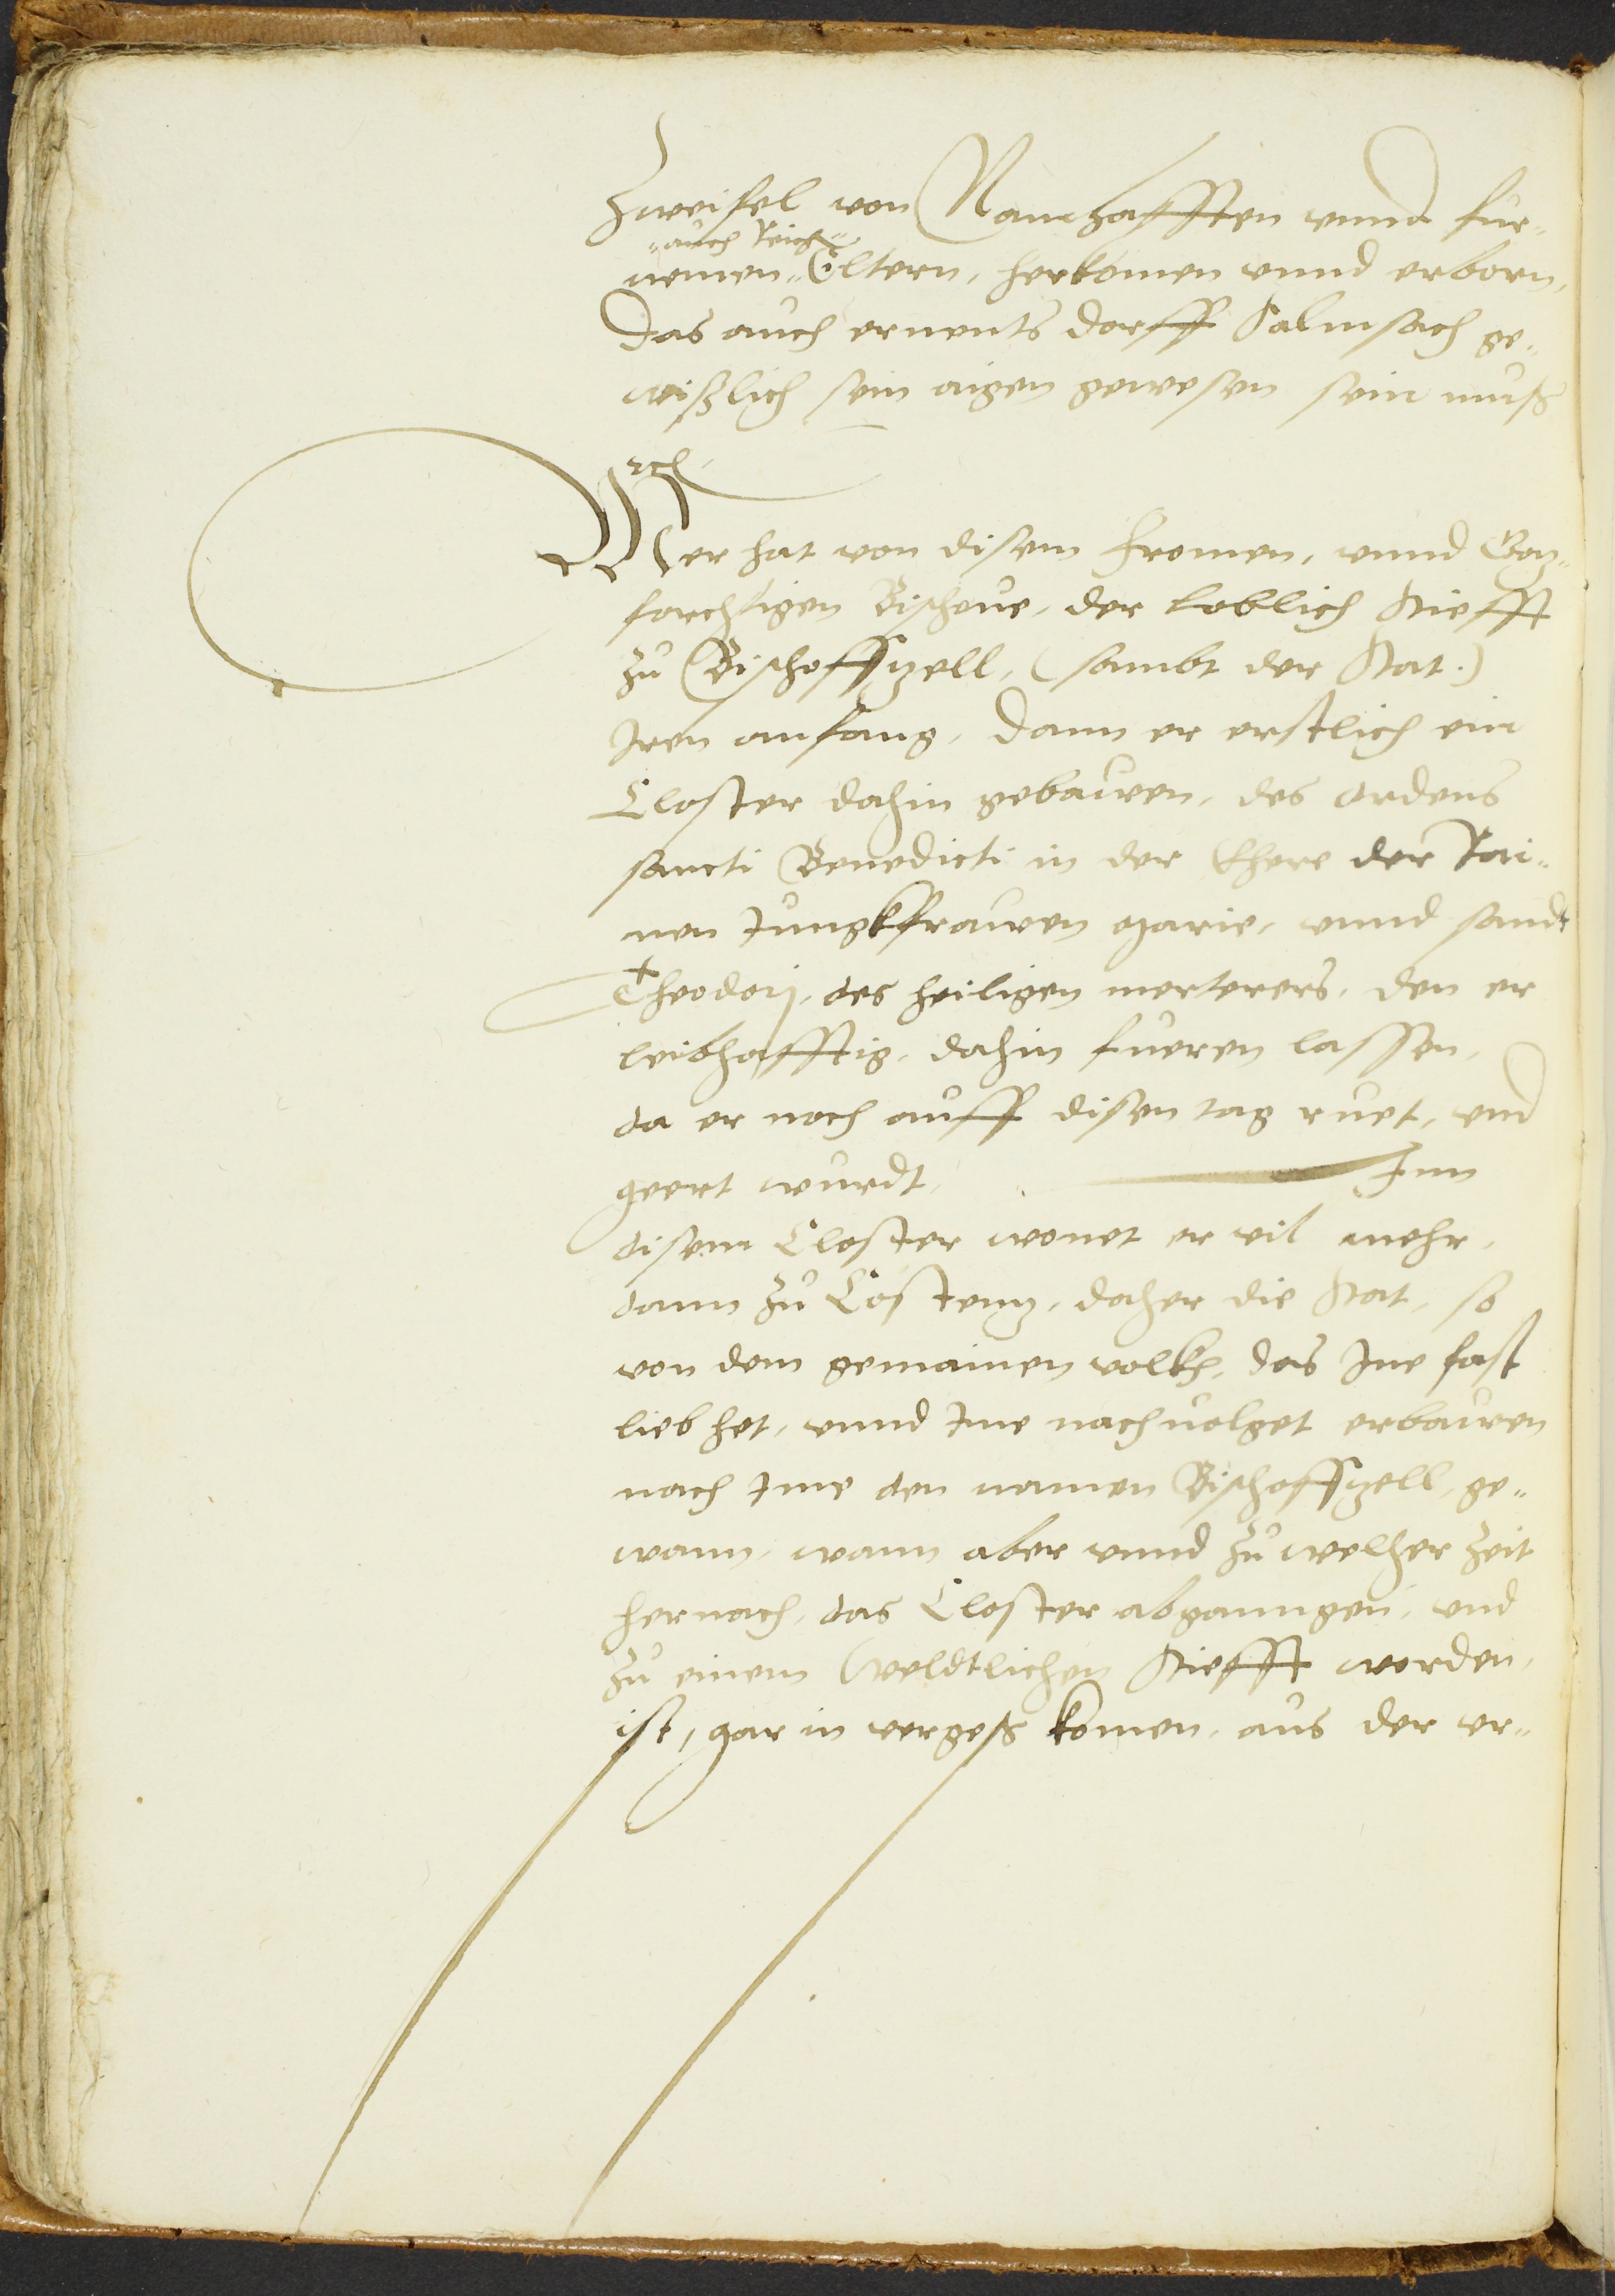 Zweifel von Namhafften vnnd fur¬
"auch Reich"
nemen "Eltern, herkomen vnnd erborn,
Das auch ernents dorff Salmsach ge¬
wißlich sein aigen gewesen sein muß
etc.
Er hat von disem fromen, vnnd Goz¬
forchtigen Bischoue, der loblich Stiefft
zu Bischoffszell, (sambt der Stat.)
Iren anfang, Dann er erstlich ein
Closter dahin gebauwen, des ordens
sancti Benedicti in der Ehere der Rai¬
nen Jungkfrauwen Marie, vnnd sandt
Theodorj, des heiligen merterers, den er
leibhafftig, dahin fueren lassen,
da er noch auff disen tag ruet, vnd
geert wurdt, Inn
disem Closter wonet er vil mehr,
dann zu Costenz, daher die Stat, so
von dem gemainen volkh, das Ine fast
lieb het, vnnd Ime nachuolget erbauwen
nach Ime den namen Bischoffszell, ge¬
wann, wann aber vnnd zu welher zeit
hernach, das Closter abganngen, vnd
zu einem Weldtlichen Stiefft worden,
ist, gar in vergeß komen, aus der er¬